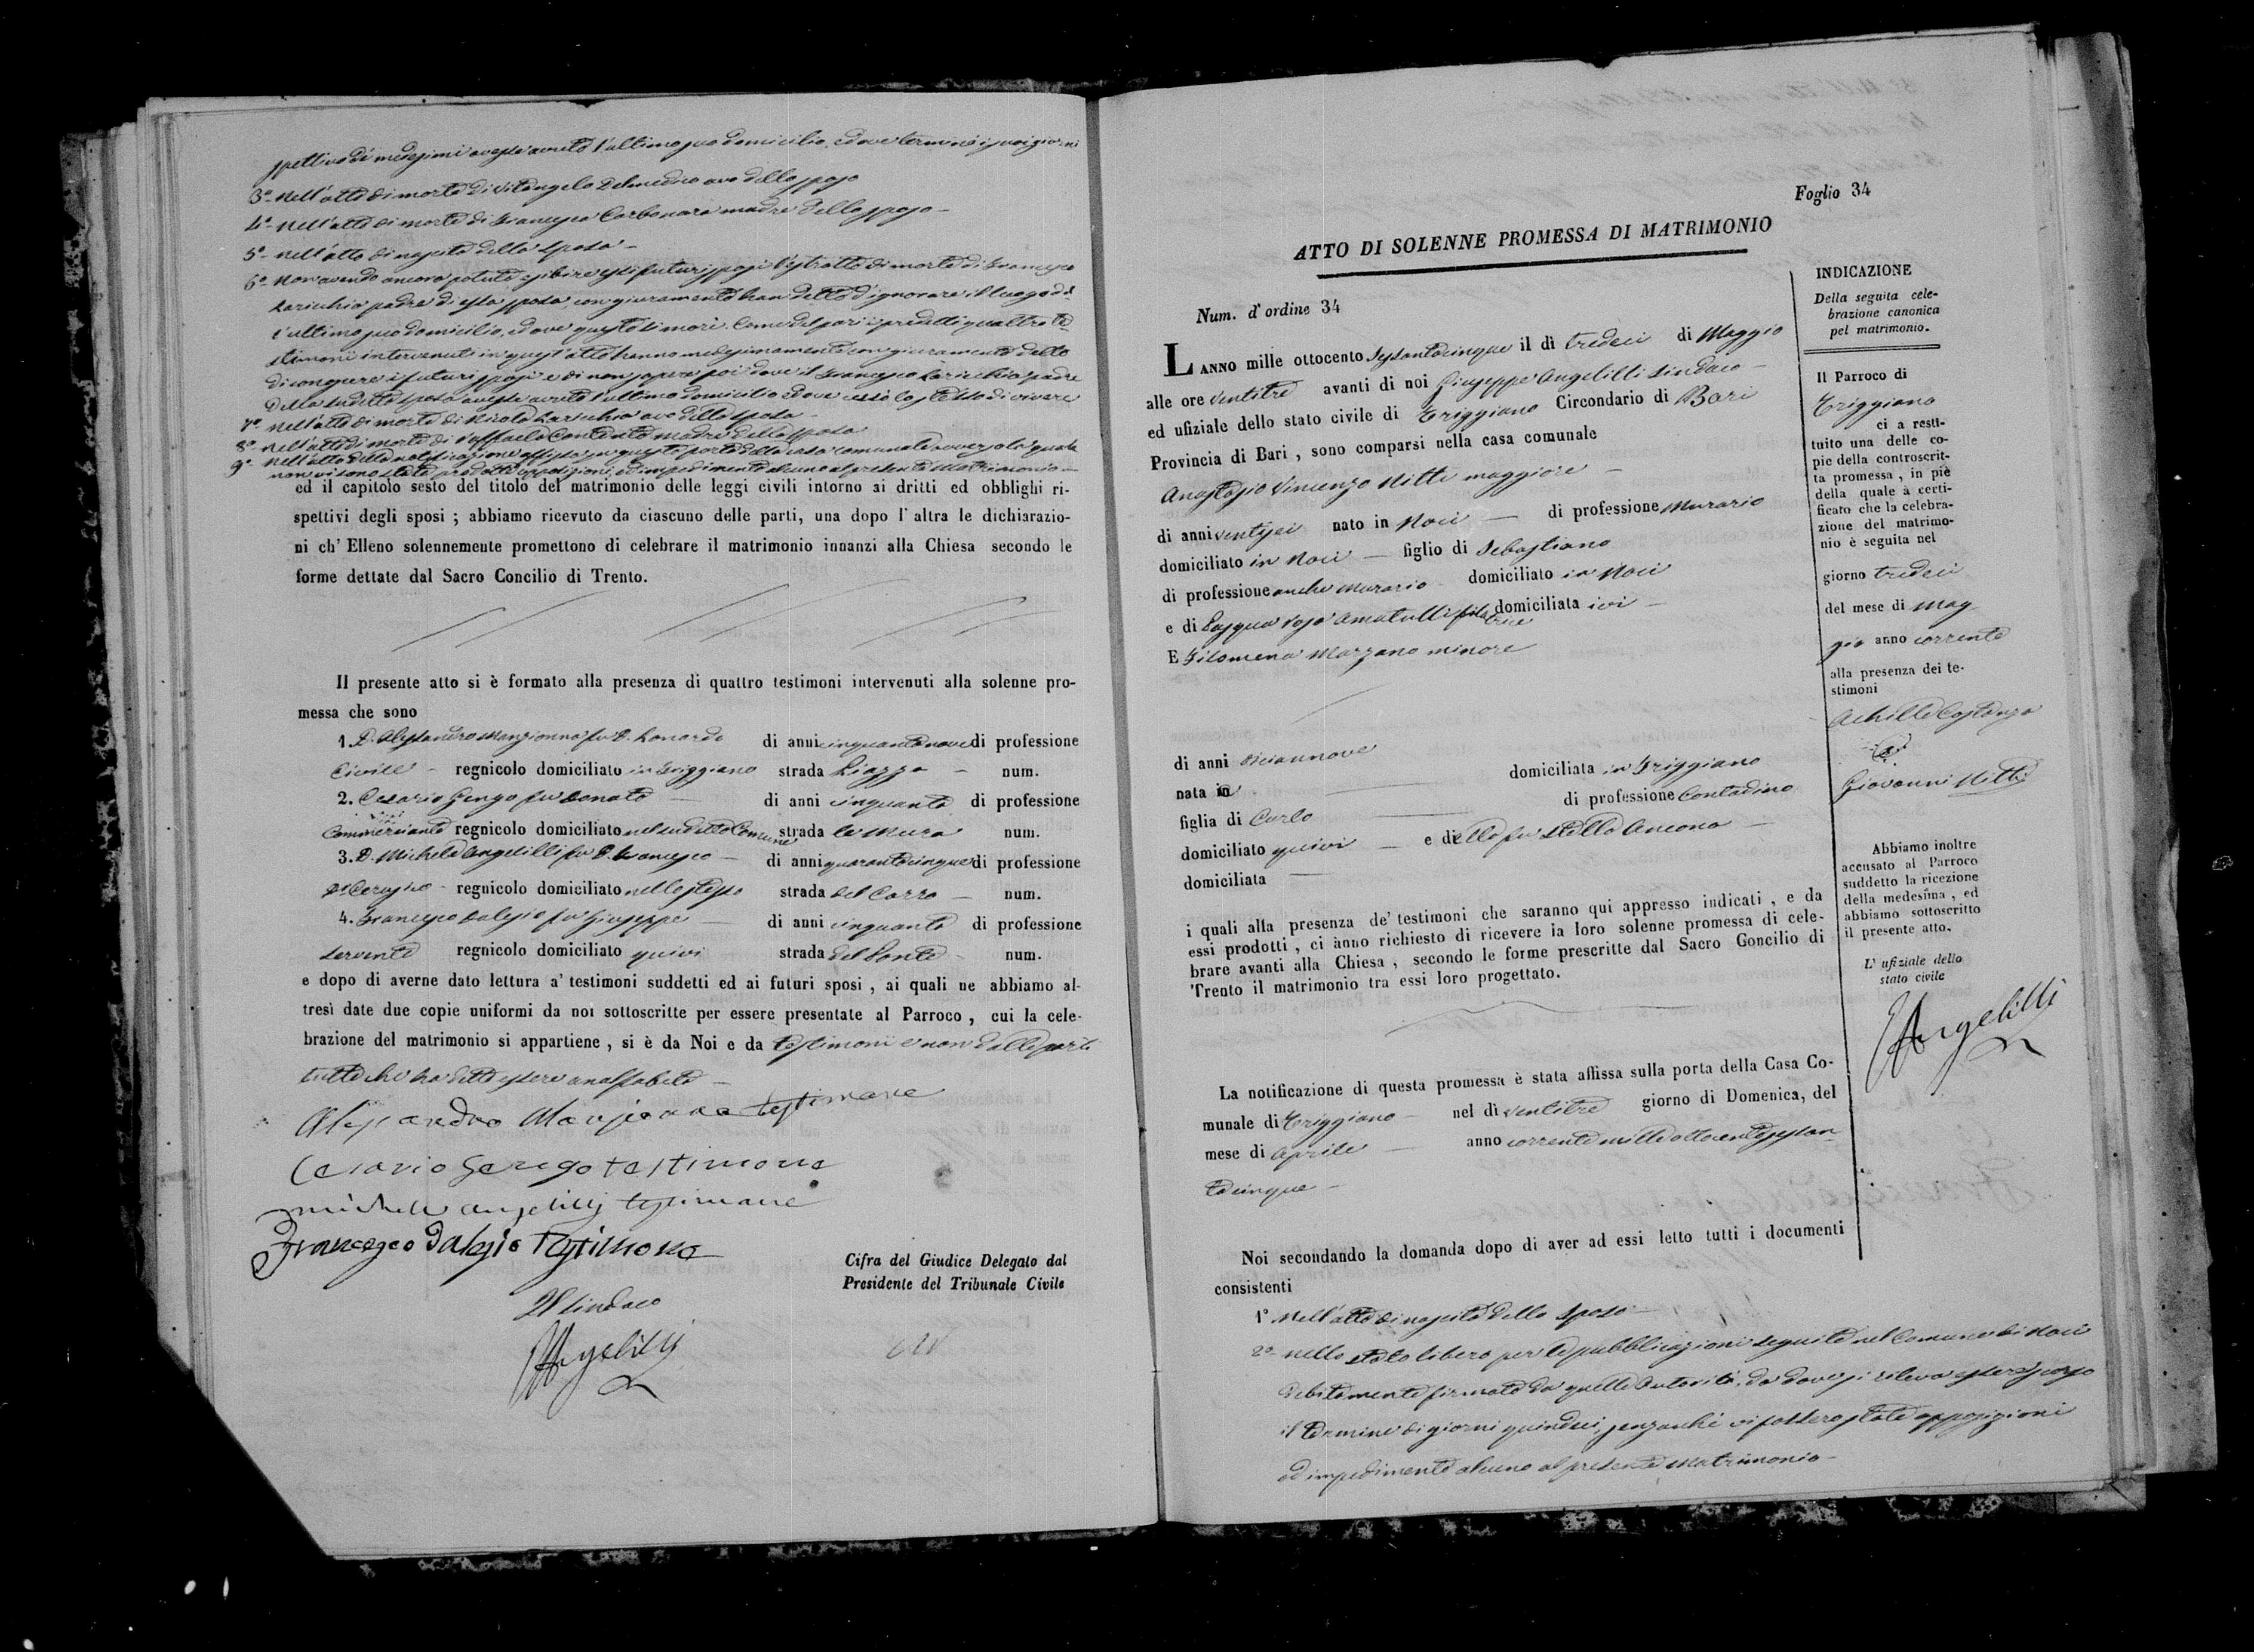 spettivo de' medesimi avesse avuto l'ultimo suo domicilio, e dove terminò i suoi giorni
3º Nell'atto di morte di Vitangelo Delmedico avo dello sposo
4º Nell'atto di morte di Francesca Carbonara madre dello sposo
5º Nell'atto di nascita della sposa
6º Non avendo ancora potuto esibire essi futuri sposi l'estratto di morte di Francesco
Laricchia padre di essa sposa, con giuramento han detto d'ignorare il luogo del
l'ultimo suo domicilio, e dove questo si morì. Come del pari i predetti quattro te
stimoni intervenuti in quest'atto hanno medesimamente con giuramento detto
di conoscere i futuri sposi e di non sapere poi dove il Francesco Laricchia padre
della sudetta sposa avesse avuto l'ultimo domicilio e dove cessò lo stesso di vivere
7º Nell'atto di morte di Nicola Laricchia avo della sposa
8º Nell'atto di morte di Raffaela Contento madre della sposa
9º Nell'atto della notificazione affissa su questa porta della casa comunale avverso la quale
non vi sono state prodotte opposizioni, ed impedimento alcuno al presente Matrimonio
ed il capitolo sesto del titolo del matrimonio delle leggi civili intorno ai dritti ed obblighi ri-
spettivi degli sposi ; abbiamo ricevuto da ciascuno delle parti, una dopo l' altra le dichiarazio-
ni ch' Elleno solennemente promettono di celebrare il matrimonio innanzi alla Chiesa secondo le
forme dettate dal Sacro Concilio di Trento.
Il presente atto si è formato alla presenza di quattro testimoni intervenuti alla solenne pro-
messa che sono
1. D. Alessandro Mangionna fu D. Leonardo di anni cinquantanove di professione
Civile regnicolo domiciliato in Triggiano strada Piazza num.
2. Cesario Gengo fu Donato di anni cinquanta di professione
Commerciante regnicolo domiciliato nel sudetto Comune strada le Mura num.
3. D. Michele Angelilli fu D. Francesco di anni quarantacinque di professione
regnicolo domiciliato nello stesso strada del Carro num.
4. Francesco Dalesio fu Giuseppe di anni cinquanta di professione
Servente regnicolo domiciliato quivi strada del Ponte num.
e dopo di averne dato lettura a' testimoni suddetti ed ai futuri sposi , ai quali ne abbiamo al-
tresì date due copie uniformi da noi sottoscritte per essere presentate al Parroco , cui la cele-
brazione del matrimonio si appartiene , si è da Noi e da testimoni e non dalle parti
tutte che ha detto essere analfabete
Alessandro Mangionna testimone
Cesario Gengo testimone
Michele Angelilli testimone
Francesco Dalesio Testimone
Cifra del Giudice Delegato dal
Presidente del Tribunale Civile
Il Sindaco
Angelilli
Foglio 34
ATTO DI SOLENNE PROMESSA DI MATRIMONIO
Num. d' ordine 34
LANNO mille ottocento sessantacinque il dì tredeci di Maggio
alle ore ventitre avanti di noi Giuseppe Angelilli Sindaco
ed ufiziale dello stato civile di Triggiano Circondario di Bari
Provincia di Bari , sono comparsi nella casa comunale
Anastasio Vincenzo Nitti maggiore
di anni ventisei nato in Noci di professione Murario
domiciliato in Noci figlio di Sebastiano
di professione anche Murario domiciliato in Noci
e di Pasqua Rosa Amatulli filatrice domiciliata ivi
E Filomena Marzano minore
di anni diciannove
nata in domiciliata in Triggiano
figlia di Carlo di professione Contadino
domiciliato quivi e di ello fu Stella Ancona
domiciliata
i quali alla presenza de' testimoni che saranno qui appresso indicati , e da
essi prodotti , ci anno richiesto di ricevere la loro solenne promessa di cele-
brare avanti alla Chiesa , secondo le forme prescritte dal Sacro Concilio di
Trento il matrimonio tra essi loro progettato.
La notificazione di questa promessa è stata affissa sulla porta della Casa Co-
munale di Triggiano nel dì ventitre giorno di Domenica, del
mese di Aprile anno corrente mille ottocento sessan
tacinque
Noi secondando la domanda dopo di aver ad essi letto tutti i documenti
consistenti
1º Nell'atto di nascita dello sposo
2º nello stato libero per le pubblicazioni seguite nel Comune di Noci
debitamente firmate da quelle Autorità, da dove si rileva essere scorso
il termine di giorni quindici, senzacchè vi fossero state opposizioni
ed impedimento alcuno al presente Matrimonio
INDICAZIONE
Della seguita cele-
brazione canonica
pel matrimonio.
Il Parroco di
Triggiano
ci a resti-
tuito una delle co-
pie della controscrit-
ta promessa , in piè
della quale à certi-
ficato che la celebra-
zione del matrimo-
nio è seguita nel
giorno tredeci
del mese di Mag
gio anno corrente
alla presenza dei te-
stimoni
Achille Costanza
e
Giovanni Nitti
Abbiamo inoltre
accusato al Parroco
suddetto la ricezione
della medesima , ed
abbiamo sottoscritto
il presente atto.
L' ufiziale dello
stato civile
Angelilli